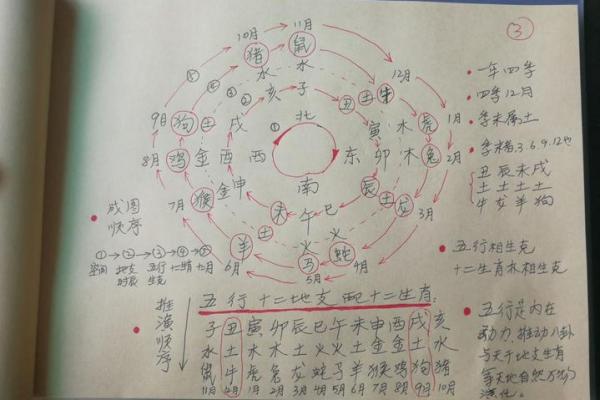 ③
10月 11月
猪 鼠
水 水
12月
亥 子
丑 土 牛
1月
寅 木 虎
9月 狗 土 戌
北
①
8月 鸡 金 酉 西
东 卯 木 兔 2月
南
7月 猴 金 申
辰 土 龙
3月
未 午 巳
土 火 火
羊 马 蛇
6月 5月 4月
成图
顺序
①→②→③→④→⑤
空间 地支 五行 十二生肖 十二月
时辰 生
一年四季
四季12月
季末属土
季末指3.6.9.12也
丑 辰 未 戌
土 土 土 土
牛 龙 羊 狗
五行相生克
十二生肖亦相生克
五行是内在
动力,推动八卦
与天干地支生肖
等天地自然万物
演化。
推演顺序
五行十二地支配十二生肖:
子 丑 寅 卯 辰 巳 午 未 申 酉 戌 亥
水 土 木 木 土 火 火 土 金 金 土 水
鼠 牛 虎 兔 龙 蛇 马 羊 猴 鸡 狗 猪
11月 12月 1月 2月 3月 4月 5月 6月 7月 8月 9月 10月